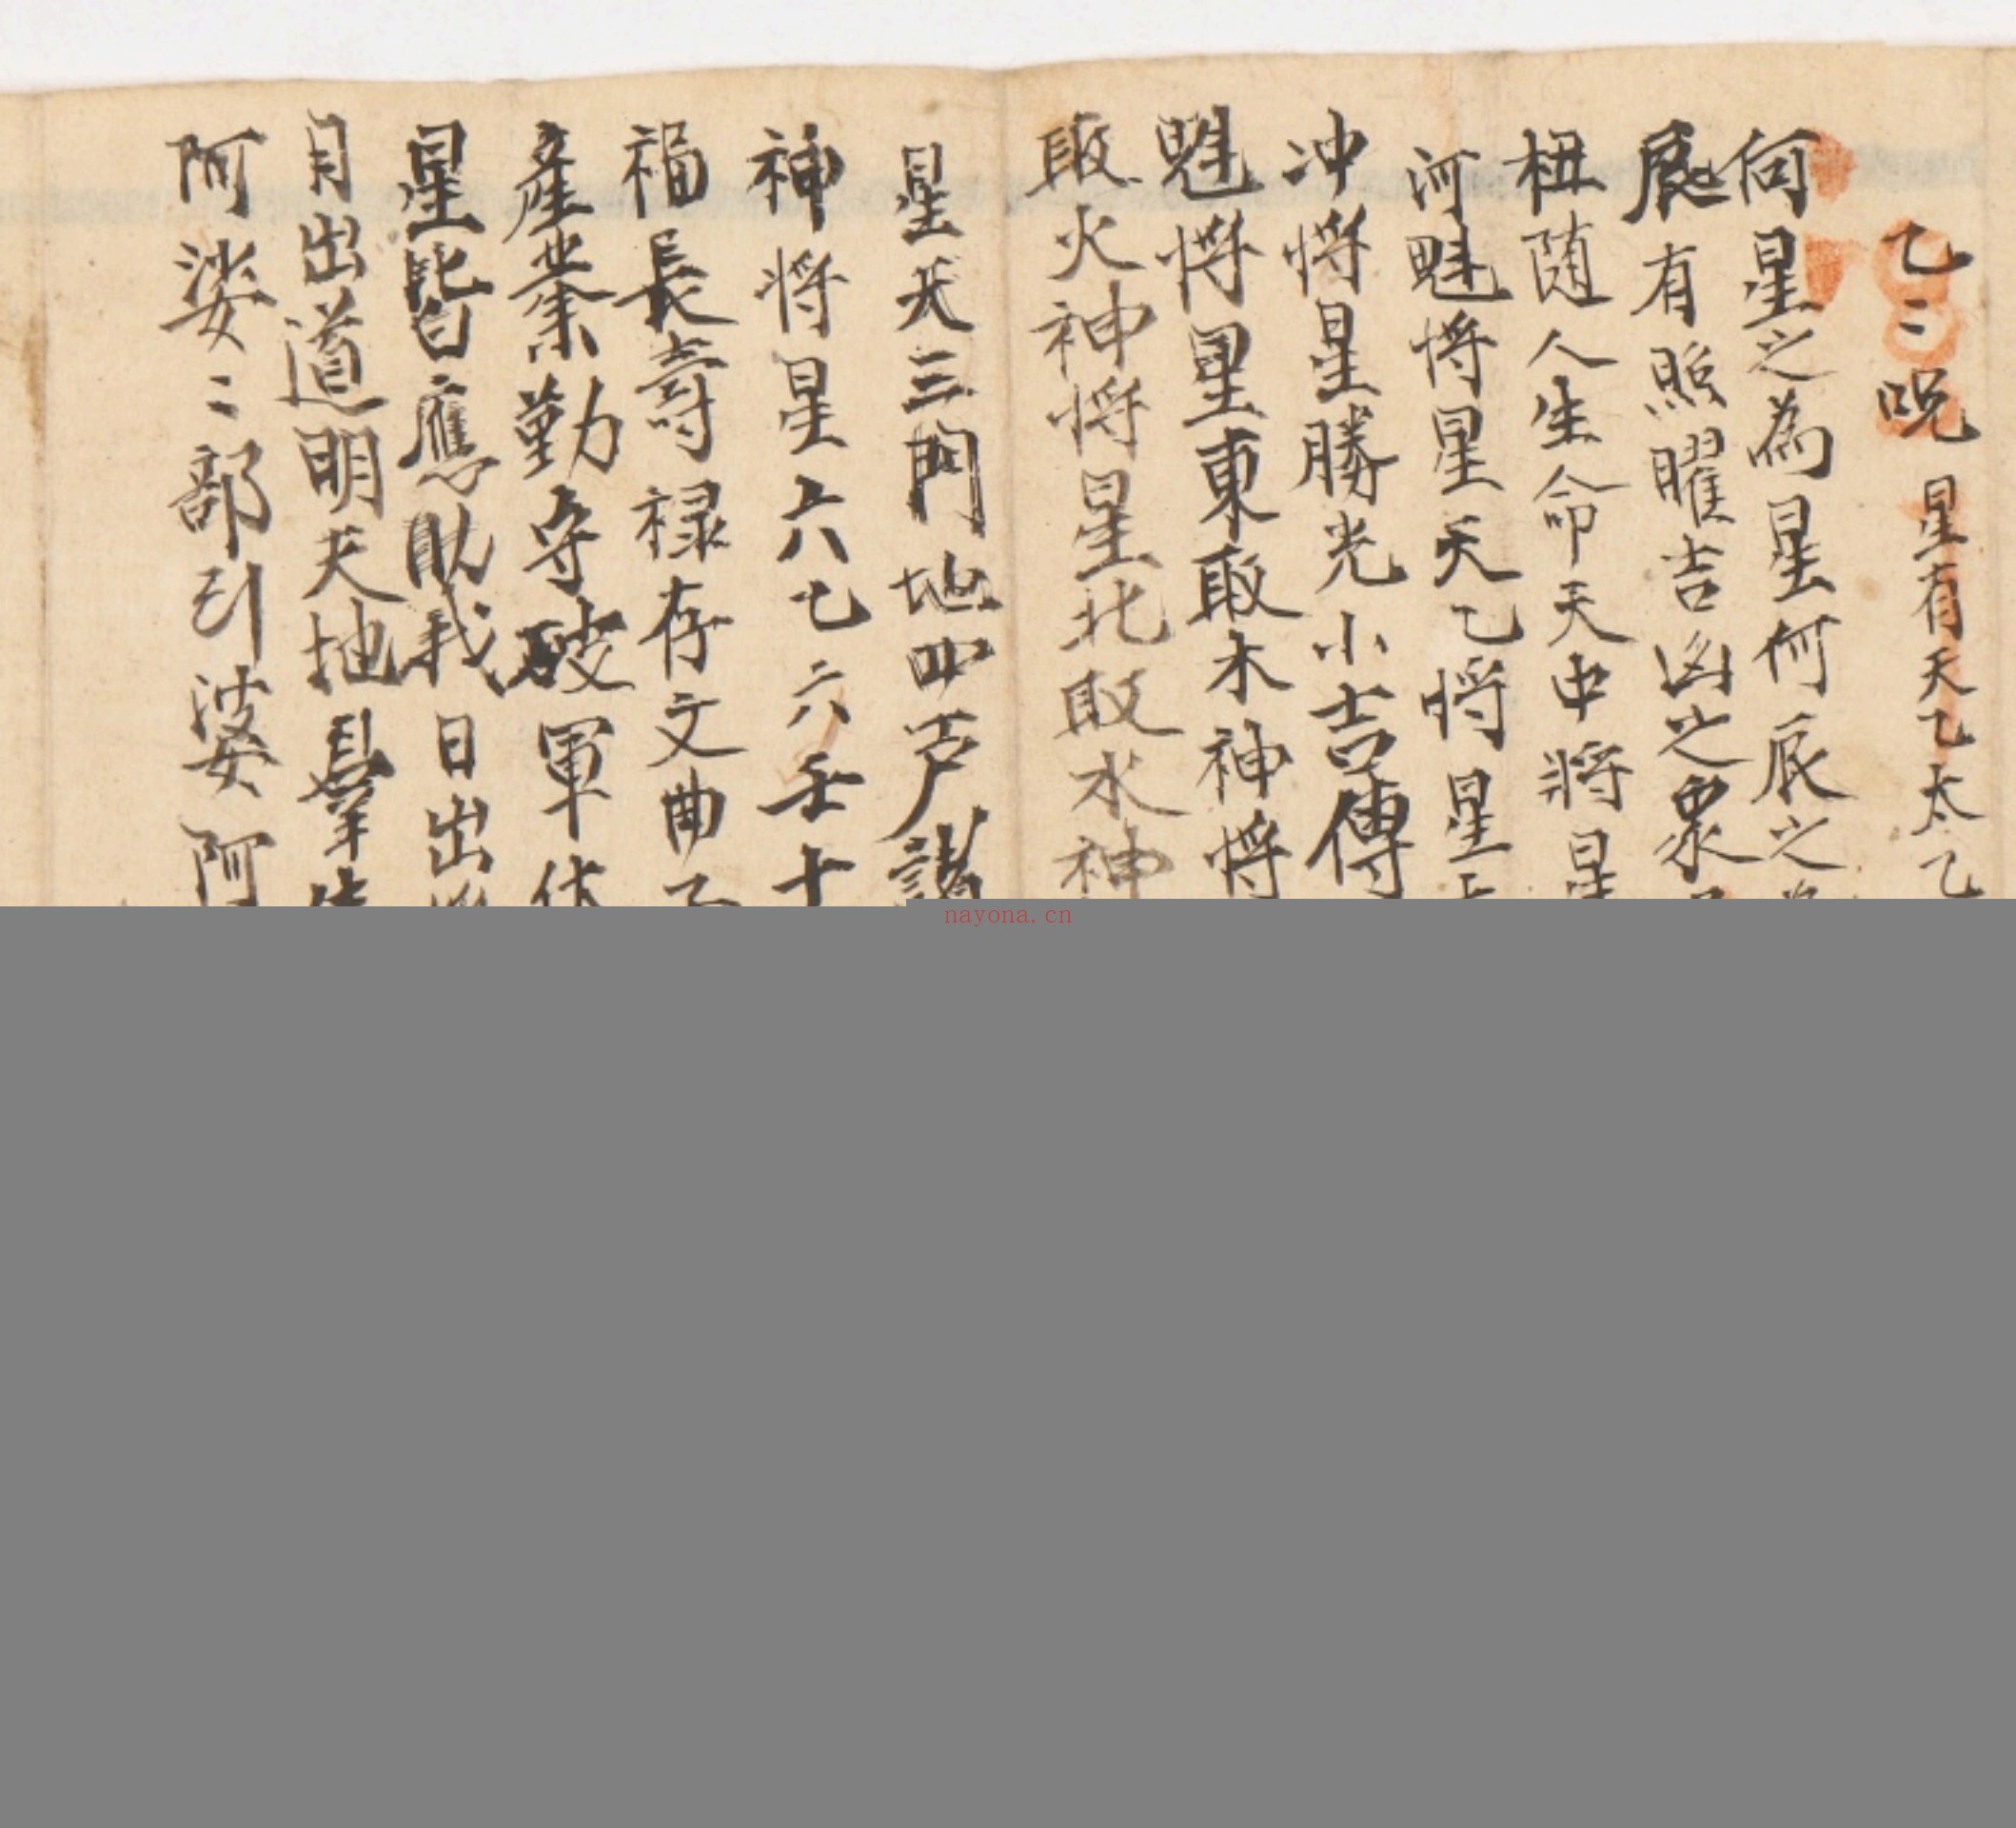 乙〻呪 星有天乙太乙
何星之為星何辰之
辰有照曜吉凶之衆
杻随人生命天中將星
河魁將星天乙將星
冲將星勝光小吉傳
魁將星東㪅木神將
㪅火神將星北㪅水神
星天三門地四户諸
神將星六七六壬十
福長壽禄存文曲
産業勤守破軍
星皆應助我日出
月出道明天地
阿娑〻部引婆阿
nayona.cn